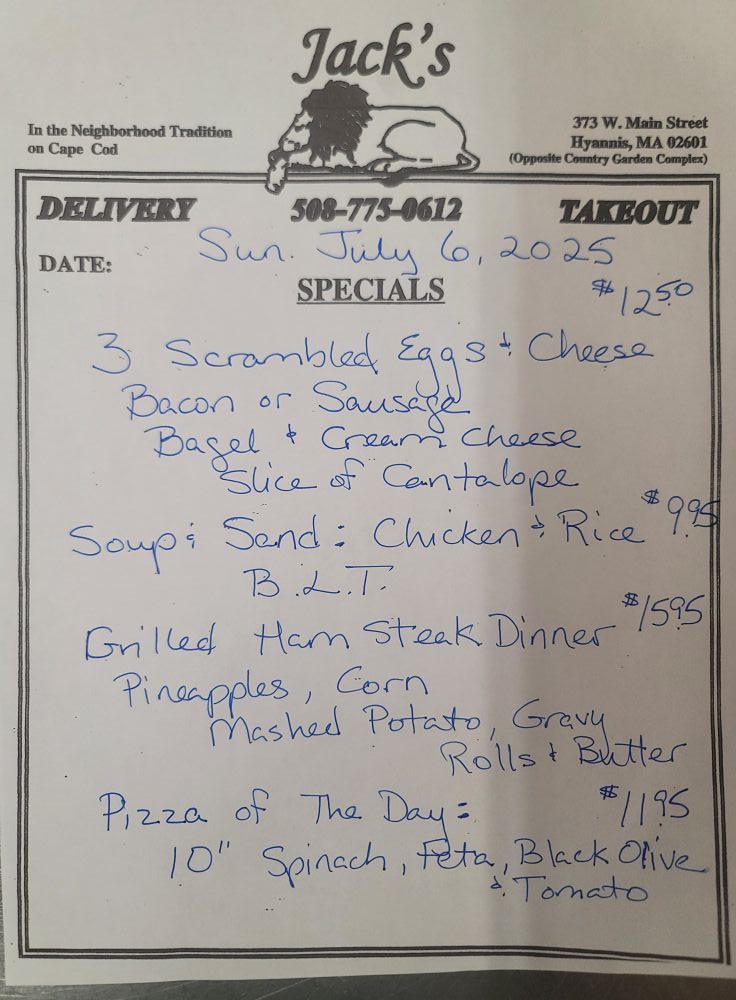 Jack's
In the Neighborhood Tradition
on Cape Cod
373 W. Main Street
Hyannis, MA 02601
(Opposite Country Garden Complex)
DELIVERY 508-775-0612 TAKEOUT
DATE: Sun. July 6, 2025
SPECIALS
$12.50
3 Scrambled Eggs & Cheese
Bacon or Sausage
Bagel & Cream Cheese
Slice of Cantalope
Soup & Sand: Chicken & Rice $9.95
B.L.T.
Grilled Ham Steak Dinner $15.95
Pineapples, Corn
Mashed Potato, Gravy
Rolls & Butter
Pizza of The Day: $11.95
10" Spinach, Feta, Black Olive
& Tomato